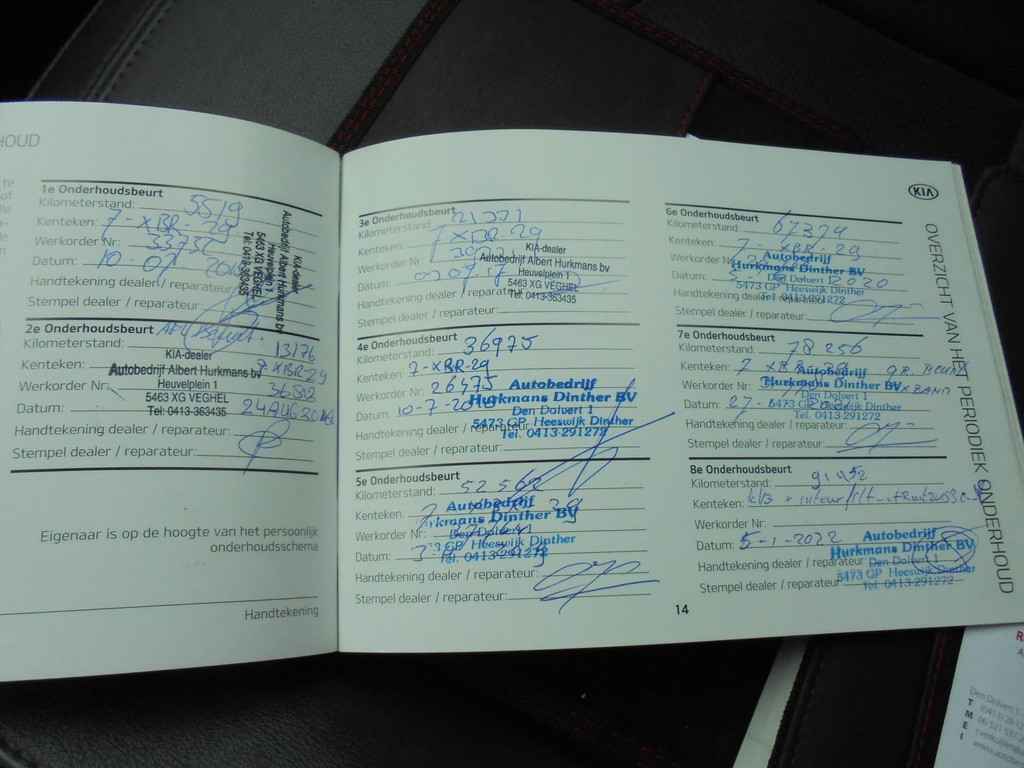 HOUD
1e Onderhoudsbeurt
Kilometerstand: 5519
Kenteken: 7-XBR-29
Werkorder Nr:
Datum: 10-07
Handtekening dealer / reparateur:
Stempel dealer / reparateur:
KIA-dealer
Autobedrijf Albert Hurkmans bv
Heuvelplein 1
5463 XG VEGHEL
Tel: 0413-363435
2e Onderhoudsbeurt
Kilometerstand: 13176
Kenteken: 7 XBR29
Werkorder Nr:
Datum: 24 AUG
Handtekening dealer / reparateur:
Stempel dealer / reparateur:
KIA-dealer
Autobedrijf Albert Hurkmans bv
Heuvelplein 1
5463 XG VEGHEL
Tel: 0413-363435
Eigenaar is op de hoogte van het persoonlijk
onderhoudsschema
Handtekening
3e Onderhoudsbeurt
Kilometerstand:
Kenteken: 7 XBR 29
Werkorder Nr:
Datum:
Handtekening dealer / reparateur:
Stempel dealer / reparateur:
KIA-dealer
Autobedrijf Albert Hurkmans bv
Heuvelplein 1
5463 XG VEGHEL
Tel: 0413-363435
4e Onderhoudsbeurt
Kilometerstand: 36975
Kenteken: 7-XBR-29
Werkorder Nr: 26475
Datum: 10-7-
Handtekening dealer / reparateur:
Stempel dealer / reparateur:
Autobedrijf
Hurkmans Dinther BV
Den Dolvert 1
5473 GP Heeswijk Dinther
Tel. 0413-291272
5e Onderhoudsbeurt
Kilometerstand: 52562
Kenteken: 7 29
Werkorder Nr:
Datum:
Handtekening dealer / reparateur:
Stempel dealer / reparateur:
Autobedrijf
Hurkmans Dinther BV
Den Dolvert 1
GP Heeswijk Dinther
Tel. 0413-291272
14
KIA
6e Onderhoudsbeurt
Kilometerstand 67379
Kenteken: 7-XBR-29
Werkorder Nr:
Datum: 2020
Handtekening dealer / reparateur:
Stempel dealer / reparateur:
Autobedrijf
Hurkmans Dinther BV
Den Dolvert 1
5473 GP Heeswijk Dinther
Tel. 0413-291272
7e Onderhoudsbeurt
Kilometerstand: 78256
Kenteken: 7
Werkorder Nr:
Datum: 27-
Handtekening dealer / reparateur:
Stempel dealer / reparateur:
Autobedrijf
Hurkmans Dinther BV
Den Dolvert 1
5473 GP Heeswijk Dinther
Tel. 0413-291272
8e Onderhoudsbeurt
Kilometerstand:
Kenteken:
Werkorder Nr:
Datum: 5-1-2022
Handtekening dealer / reparateur:
Stempel dealer / reparateur:
Autobedrijf
Hurkmans Dinther BV
Den Dolvert 1
5473 GP Heeswijk Dinther
Tel. 0413-291272
OVERZICHT VAN HET PERIODIEK ONDERHOUD